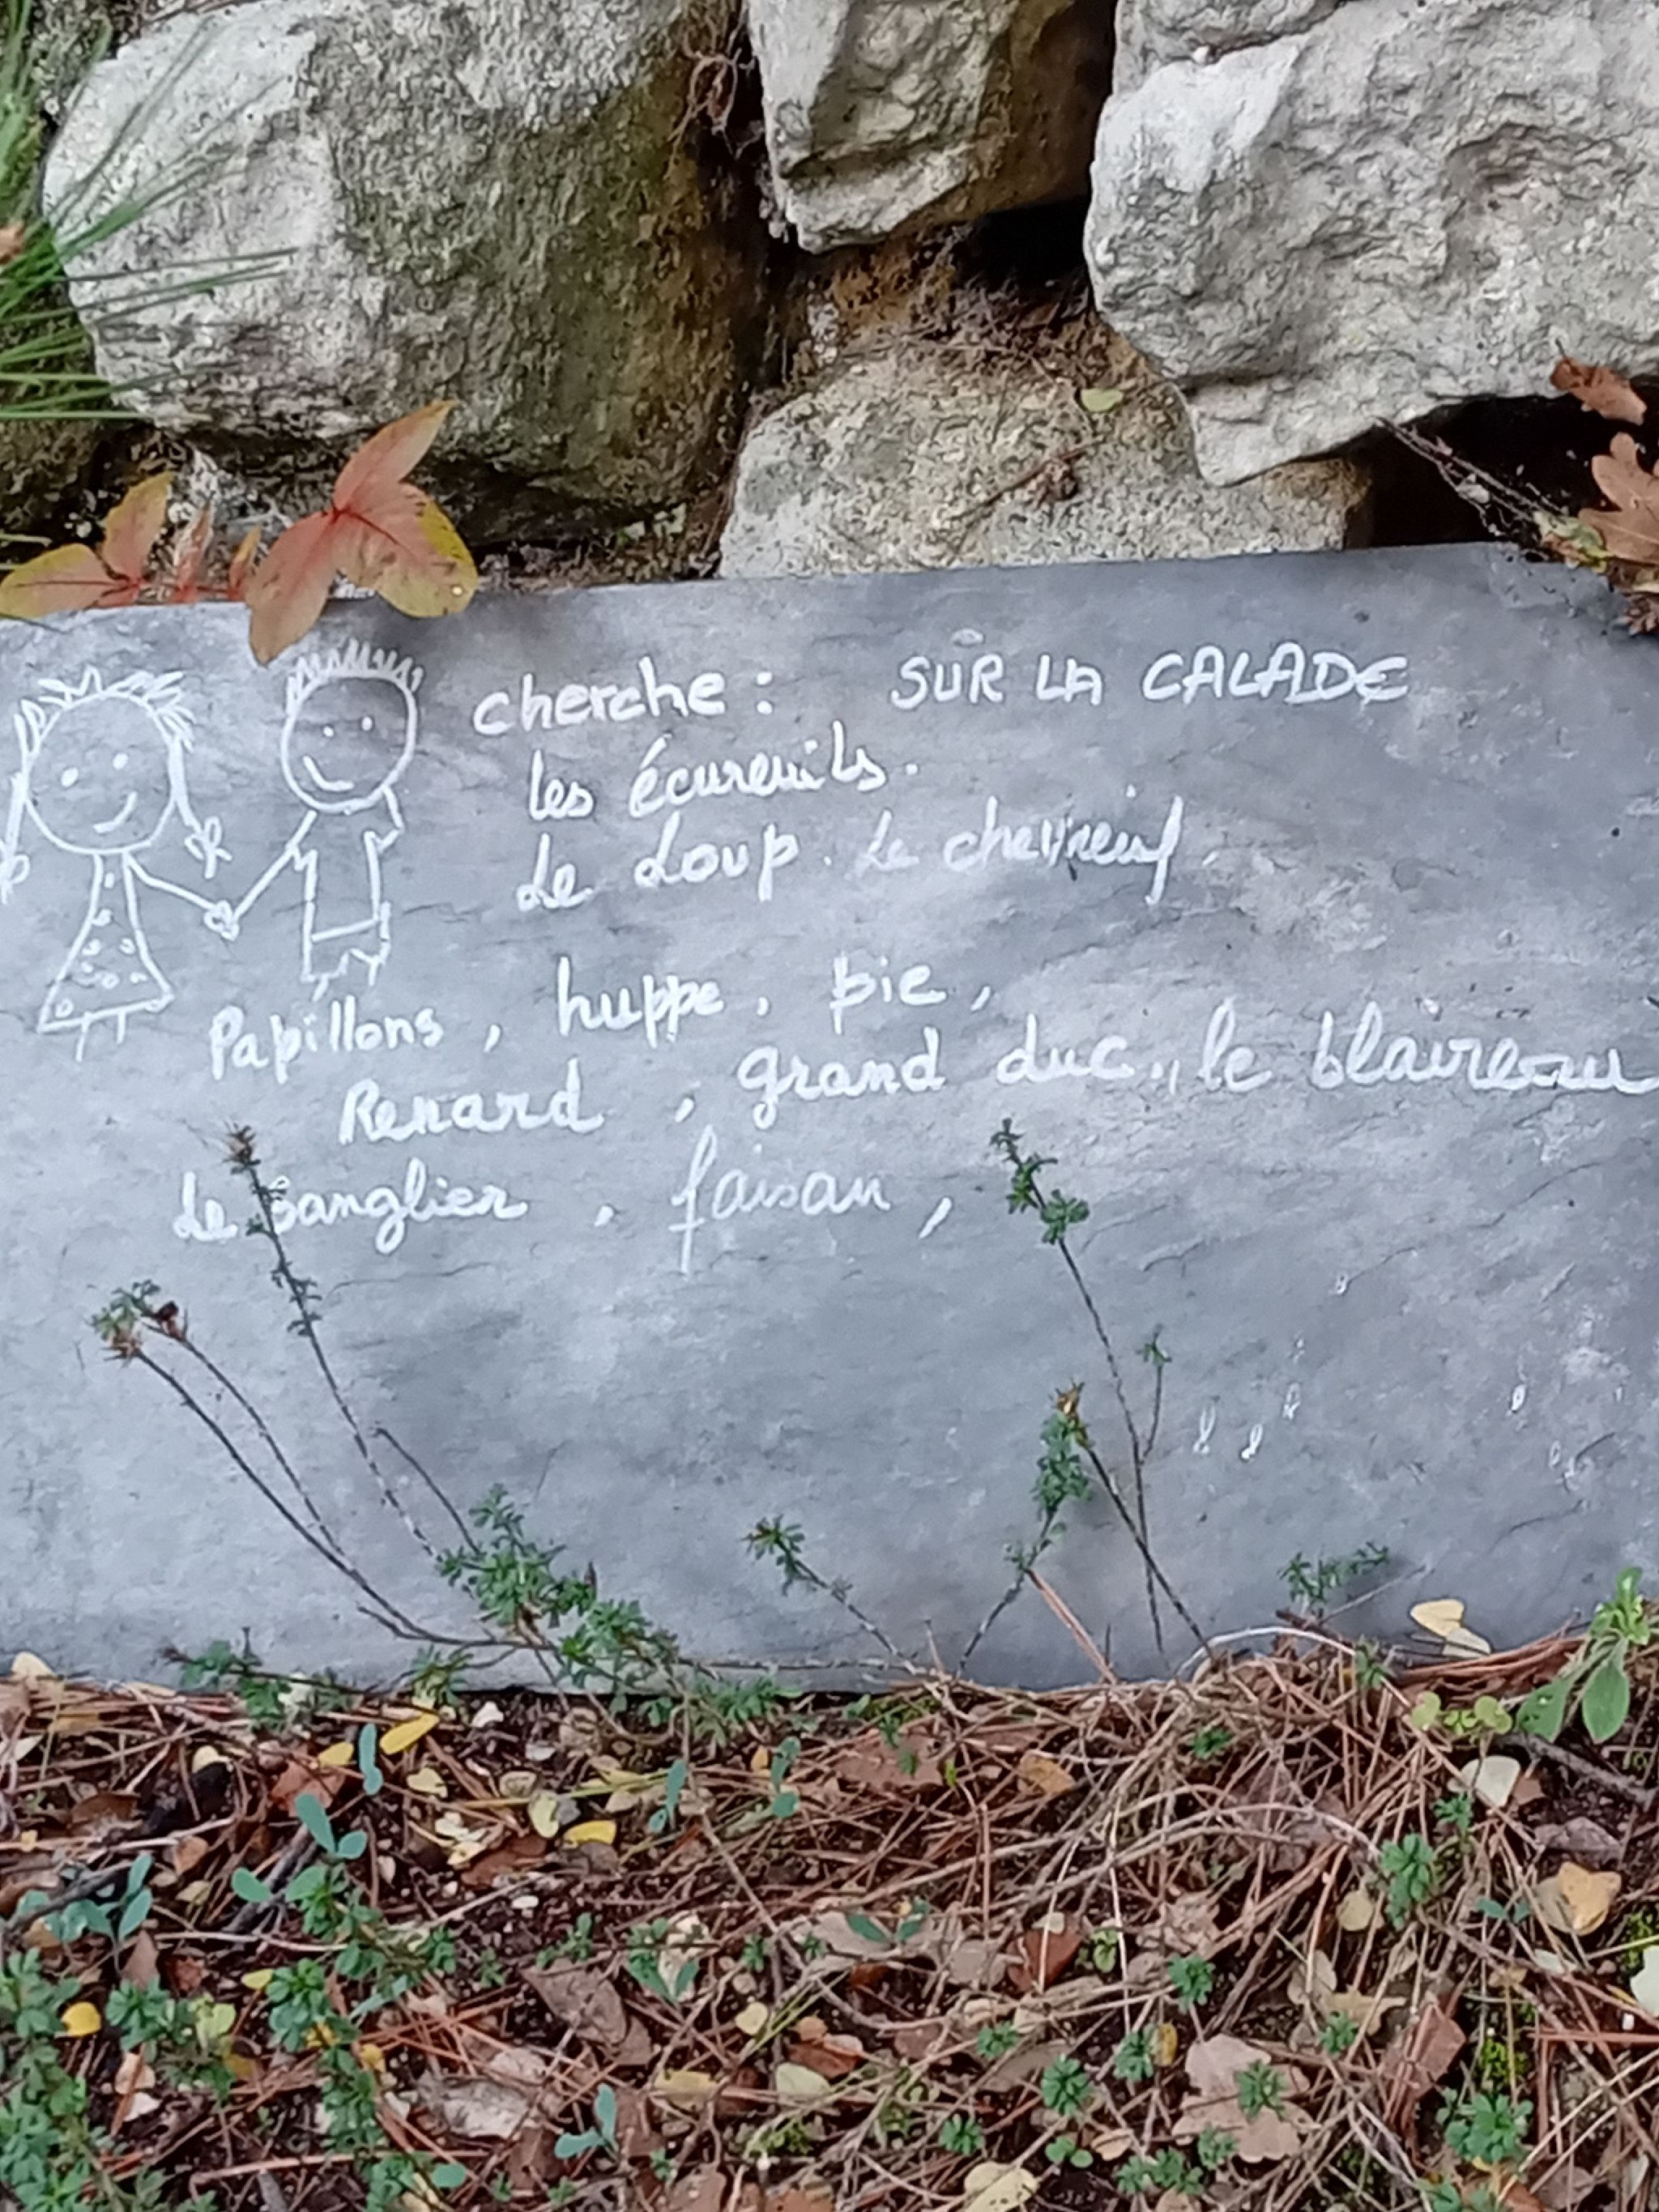 cherche : SUR LA CALADE
les écureuils.
Le Loup. Le chevreuil
Papillons, huppe, pie,
Renard, grand duc., le blaireau
Le sanglier, faisan,